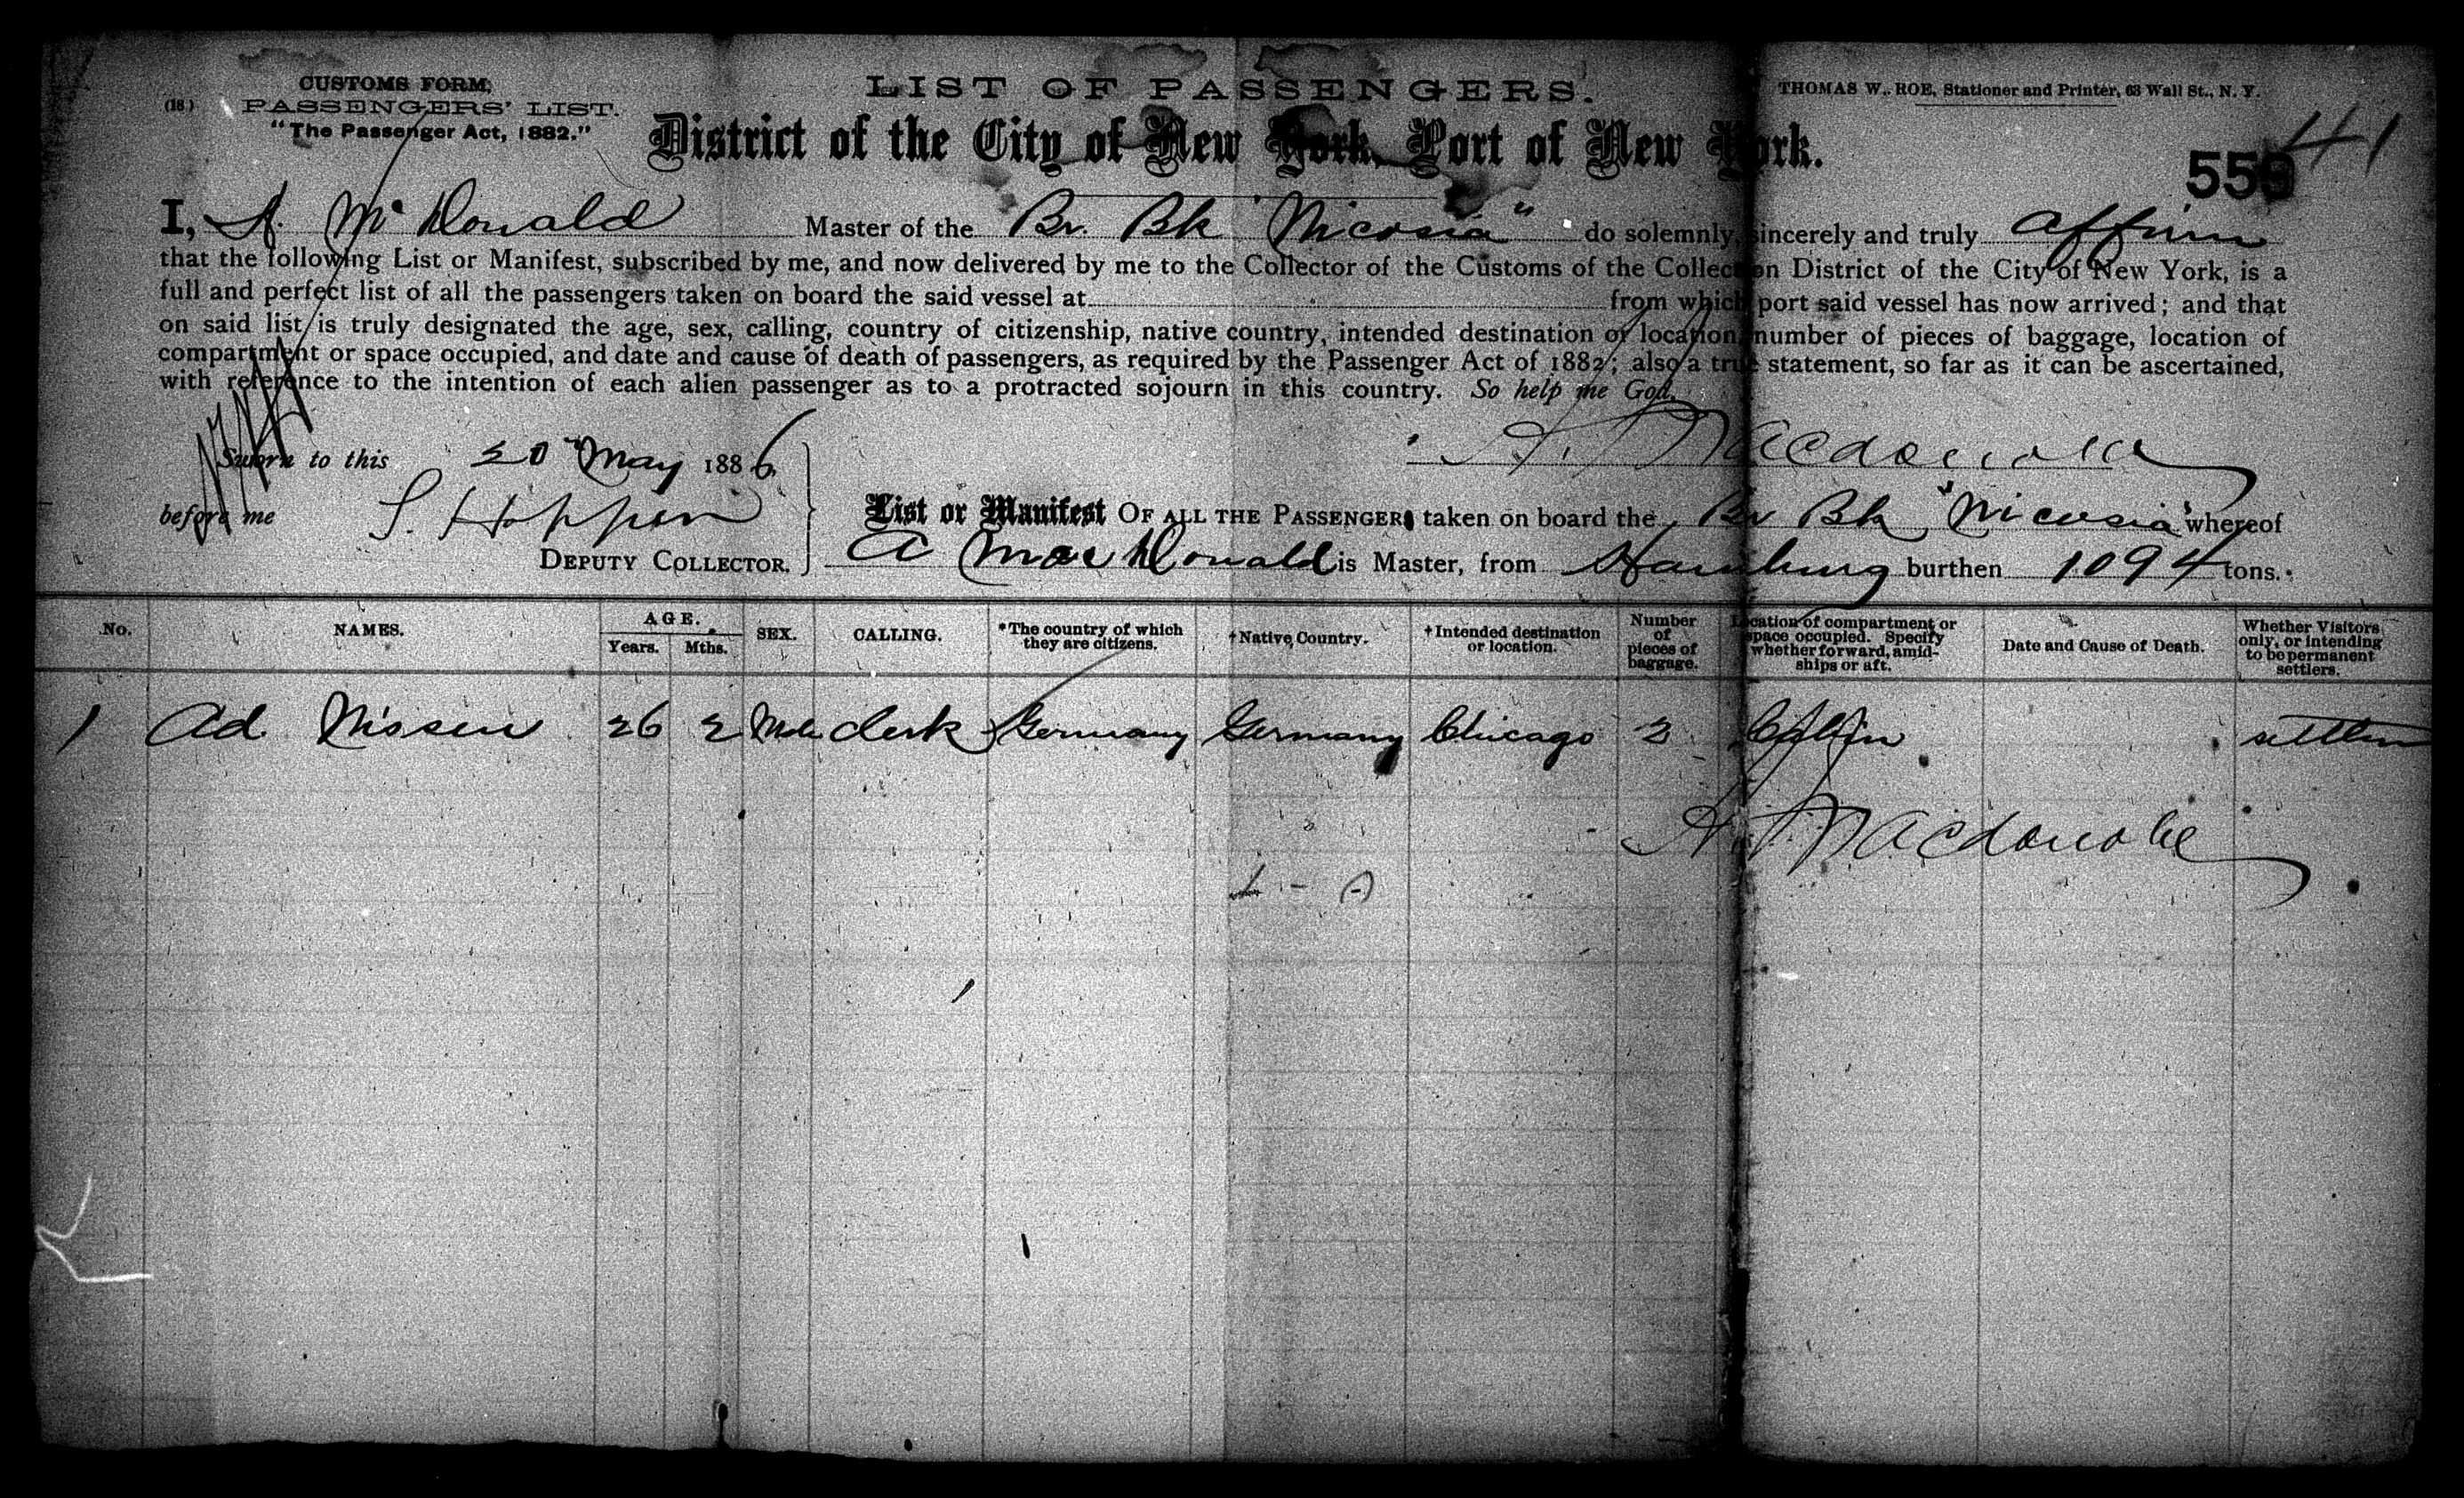 CUSTOMS FORM,
(18)
PASSENGERS' LIST.
"The Passenger Act, 1882."
LIST OF PASSENGERS.
THOMAS W. ROE, Stationer and Printer, 63 Wall St., N. Y.
District of the City of New York, Port of New York.
41
I, A. McDonald Master of the Br. Bk "Nicosia" do solemnly, sincerely and truly affirm
that the following List or Manifest, subscribed by me, and now delivered by me to the Collector of the Customs of the Collection District of the City of New York, is a
full and perfect list of all the passengers taken on board the said vessel at from which port said vessel has now arrived; and that
on said list is truly designated the age, sex, calling, country of citizenship, native country, intended destination or location, number of pieces of baggage, location of
compartment or space occupied, and date and cause of death of passengers, as required by the Passenger Act of 1882; also a true statement, so far as it can be ascertained,
with reference to the intention of each alien passenger as to a protracted sojourn in this country. So help me God.
A. Macdonald
Sworn to this 20 May 1886
before me S. Hoppen
DEPUTY COLLECTOR.
List or Manifest OF ALL THE PASSENGERS taken on board the Br Bk "Nicosia" whereof
A MacDonald is Master, from Hamburg burthen 1094 tons.
No. NAMES. AGE. Years. Mths. SEX. CALLING. *The country of which they are citizens. †Native Country. †Intended destination or location. Number of pieces of baggage. Location of compartment or space occupied. Specify whether forward, amidships or aft. Date and Cause of Death. Whether Visitors only, or intending to be permanent settlers.
1 Ad Nissen 26 2 Male clerk Germany Germany Chicago 2 Cabin settler
A. Macdonald